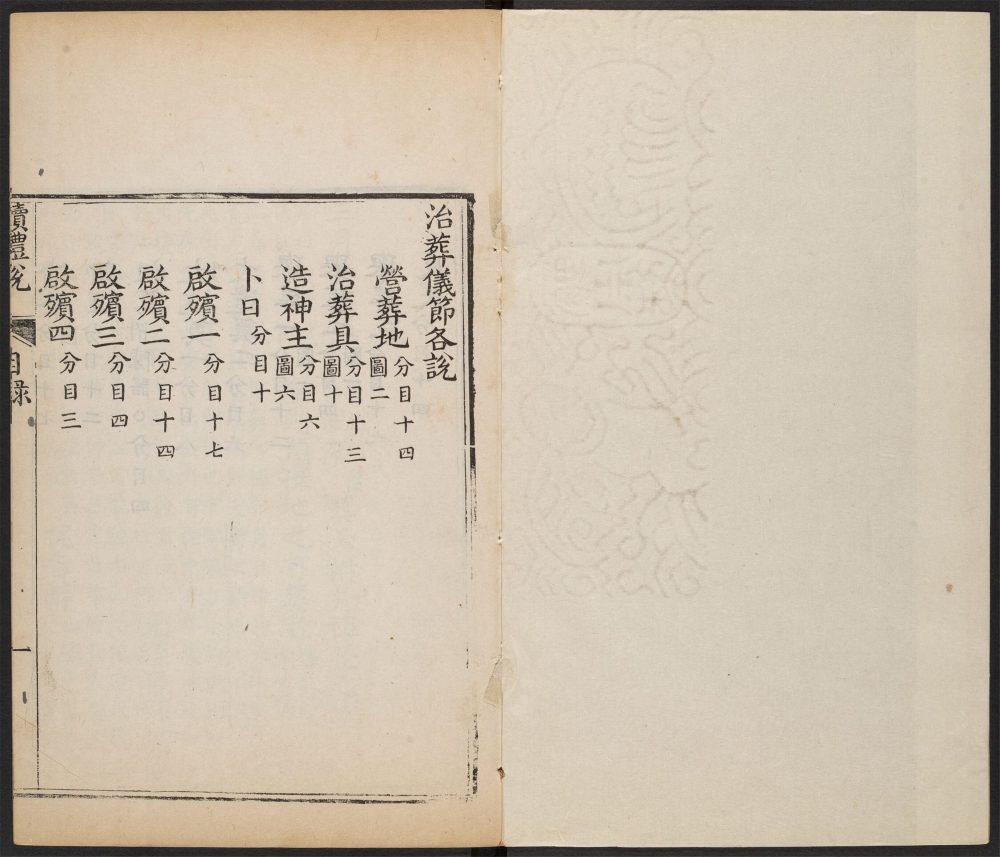 治葬儀節各説
營葬地 分目十四 圖二
治葬具 分目十三 圖十四
造神主 分目六 圖六
卜日 分目十
啟殯一 分目十七
啟殯二 分目十四
啟殯三 分目四
啟殯四 分目三
讀禮説 目録 一